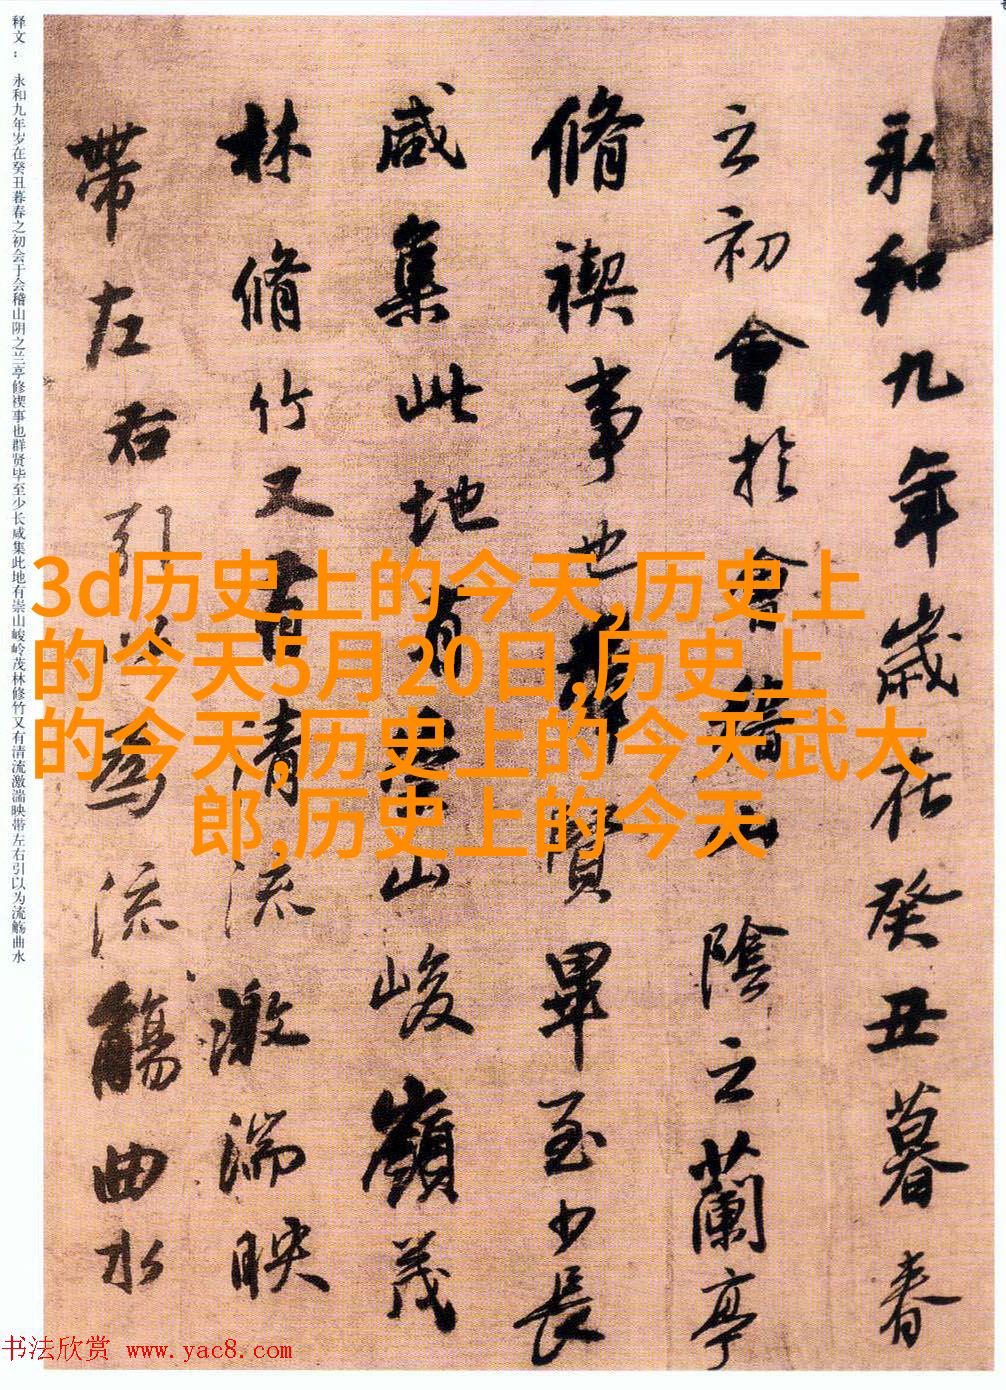 永和九年歲在癸丑暮春
之初會於會稽山陰之蘭亭
脩禊事也羣賢畢至少長
咸集此地有崇山峻嶺茂
林脩竹又有清流激湍映
帶左右引以為流觴曲水
释文：永和九年岁在癸丑暮春之初会于会稽山阴之兰亭修禊事也群贤毕至少长咸集此地有崇山峻岭茂林修竹又有清流激湍映带左右引以为流觞曲水
3d历史上的今天,历史上
的今天5月20日,历史上
的今天,历史上的今天武大
郎,历史上的今天
书法欣赏 www.yac8.com